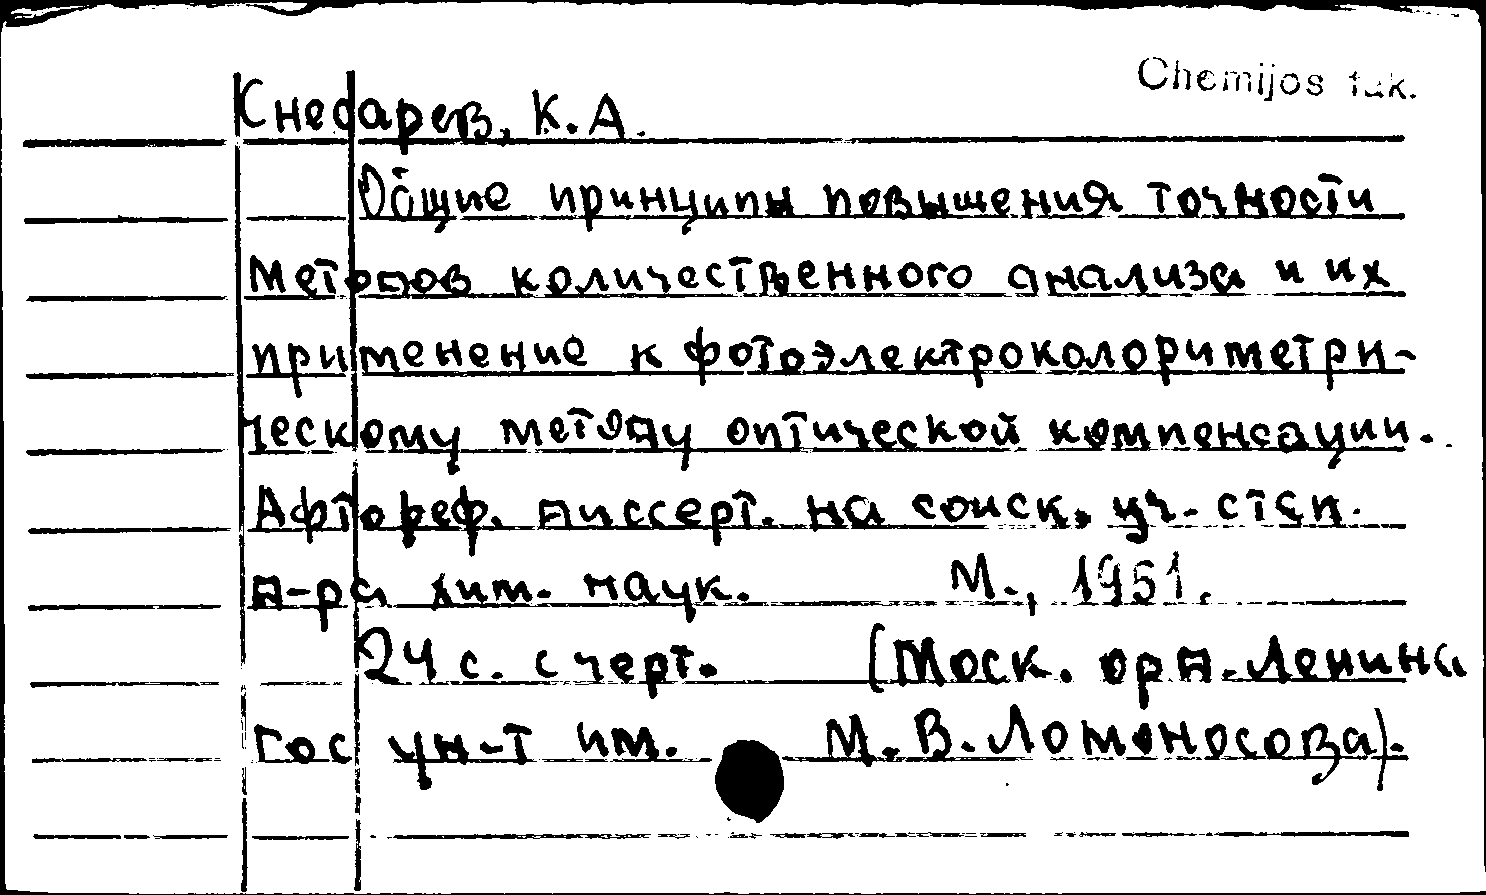 Chemijos fak.
Кнебарев, К.А.
Общие принципы повышения точности
методов количественного анализа и их
применение к фотоэлектроколориметри-
ческому методу оптической компенсации.
Афтореф. диссерт. на соиск. уч. степ.
д-ра хим. наук. М., 1951.
24 с. с черт. (Моск. орд. Ленина
Гос ун-т им. М.В. Ломоносова).